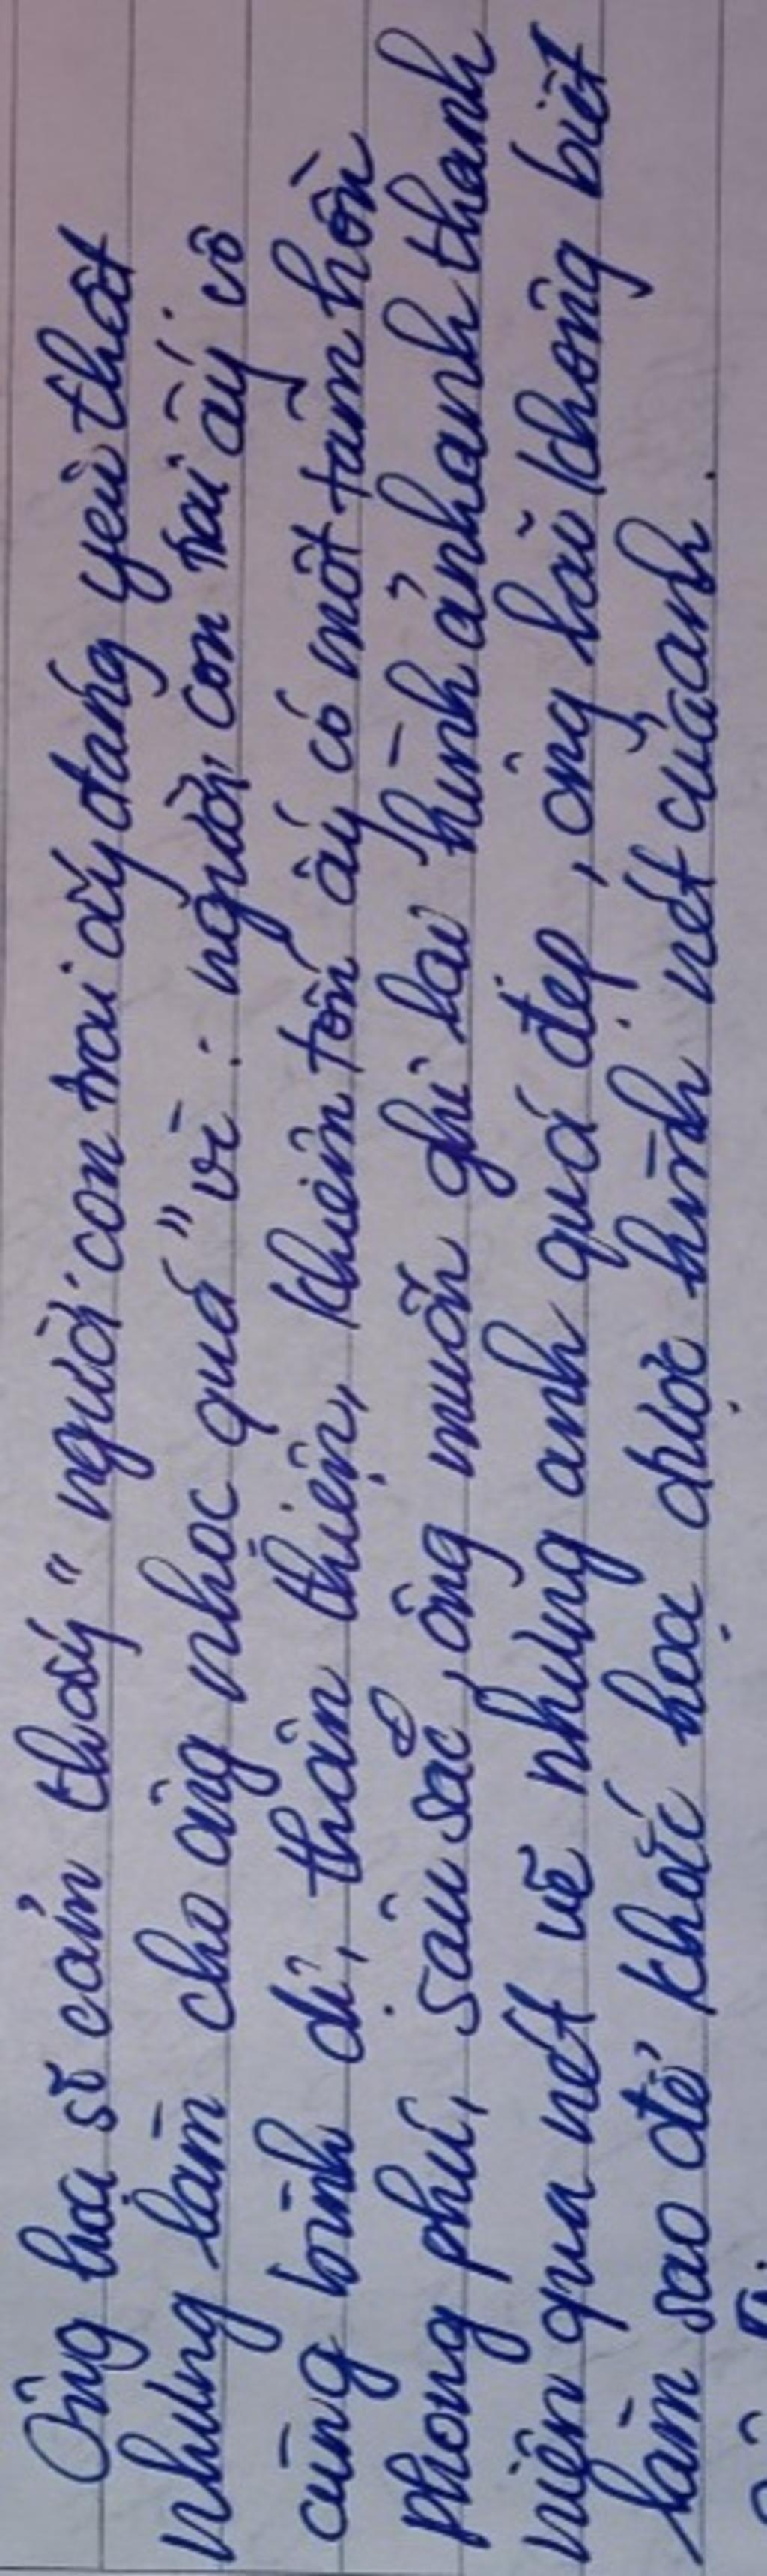 Ông họa sĩ cảm thấy " người con trai ấy đáng yêu thật
nhưng làm cho ông nhọc quá " vì : người con trai ấy vô
cùng bình dị, thân thiện, khiêm tốn ấy có một tâm hồn
phong phú, sâu sắc, ông muốn ghi lại hình ảnh anh thanh
niên qua nét vẽ nhưng anh quá đẹp, ông lão không biết
làm sao để khắc họa được hình nét của anh.